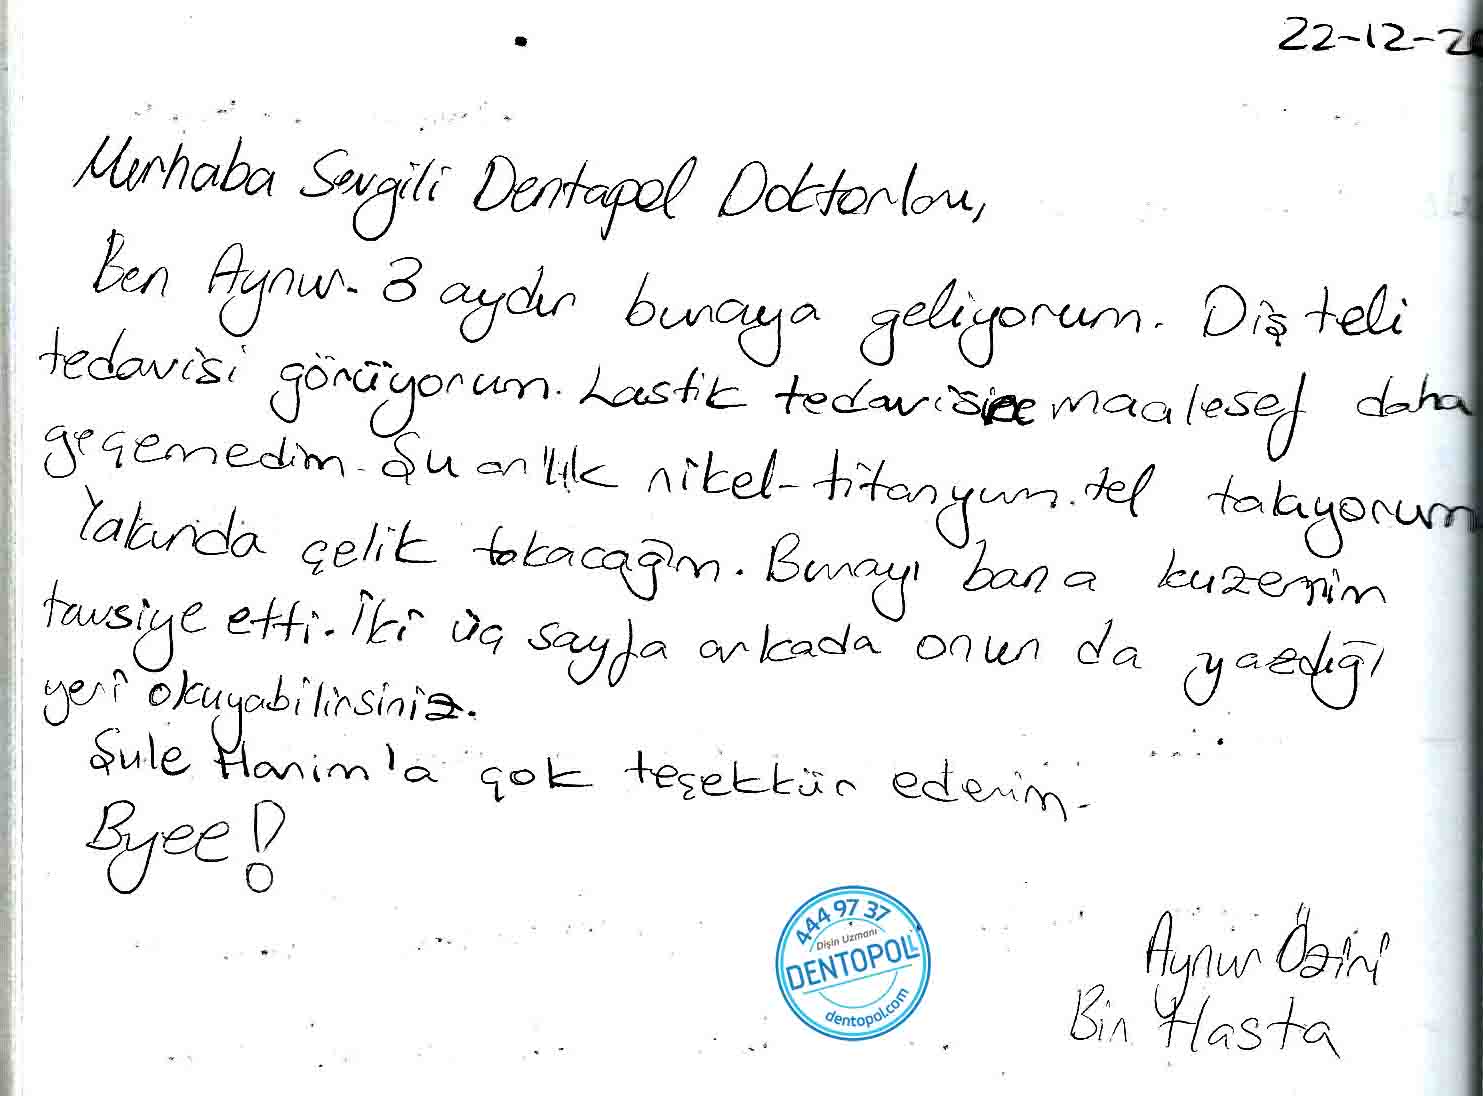 22-12-2
Merhaba Sevgili Dentapol Doktorları,
Ben Aynur. 3 aydır buraya geliyorum. Diş teli
tedavisi görüyorum. Lastik tedavisine maalesef daha
geçemedim. Şu anlık nikel-titanyum tel takıyorum
Yakında çelik takacağım. Burayı bana kuzenim
tavsiye etti. İki üç sayfa arkada onun da yazdığı
yeri okuyabilirsiniz.
Şule Hanım'a çok teşekkür ederim.
Byee!
444 97 37
Dişin Uzmanı
DENTOPOL
dentopol.com
Aynur Özini
Bir Hasta